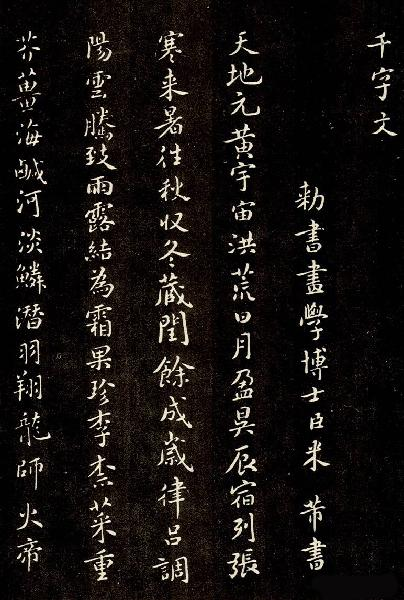 千字文
勅書畫學博士臣米芾書
天地元黃宇宙洪荒日月盈昃辰宿列張
寒来暑往秋収冬藏閏餘成嵗律呂調
陽雲騰致雨露結為霜果珍李柰菜重
芥薑海鹹河淡鱗潛羽翔龍師火帝